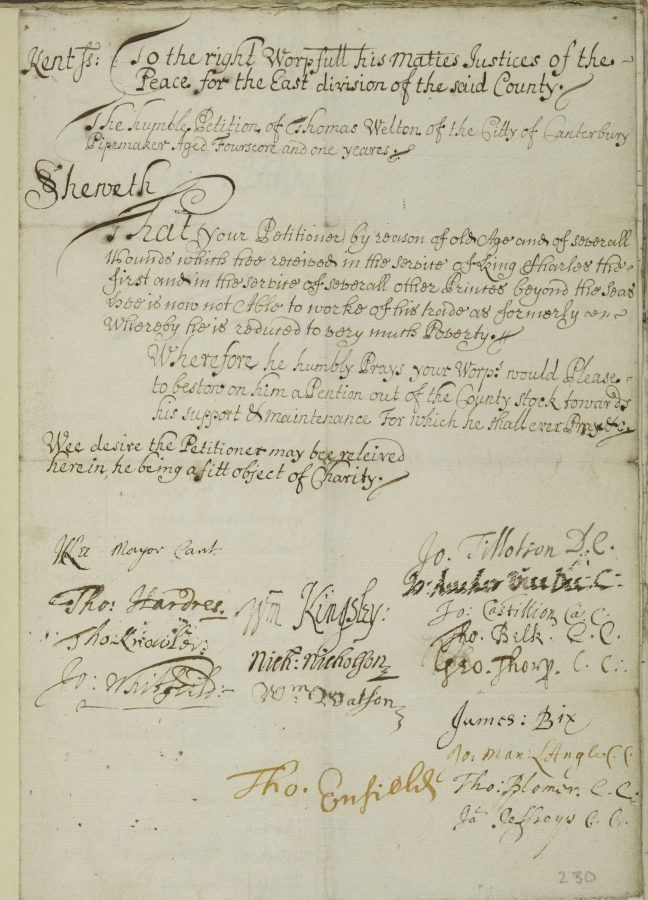 Kent ss: To the right Worpfull his Maties Justices of the
Peace for the East division of the said County.
The humble Petition of Thomas Welton of the Citty of Canterbury
Pipemaker Aged Fourscore and one yeares
Sheweth
That (your Petitioner) by reason of old Age and of severall
Wounds which hee received in the service of King Charles the
first and in the service of severall other Princes beyond the Seas
hee is now not Able to worke of his trade as formerly
Whereby he is reduced to very much Poverty.
Wherefore he humbly Prays your Worps. would Please
to bestow on him a Pention out of the County stock towards
his support & maintenance For which he shall ever Pray &c.
Wee desire the Petitioner may bee releived
herein, he being a fitt object of Charity.
Mayor Cant
Tho: Hardres
Tho Knowler
Jo: Whitfield
Wm Kingsley:
Nich: Nicholson
Wm Watson
Tho. Enfield
Jo. Tillotson D. C.
Jo: Castillion Ca. C.
Tho. Belk. C. C.
Geo. Thorp. C. C.
James: Bix
Jo: Man: L'Angle C. C.
Tho: Blomer. C. C.
Ja Jeffreys C. C.
230